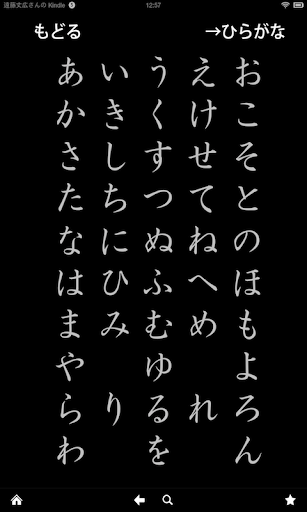 遠藤丈広さんの Kindle 5 12:57
もどる →ひらがな
あ い う え お
か き く け こ
さ し す せ そ
た ち つ て と
な に ぬ ね の
は ひ ふ へ ほ
ま み む め も
や ゆ よ
ら り る れ ろ
わ を ん